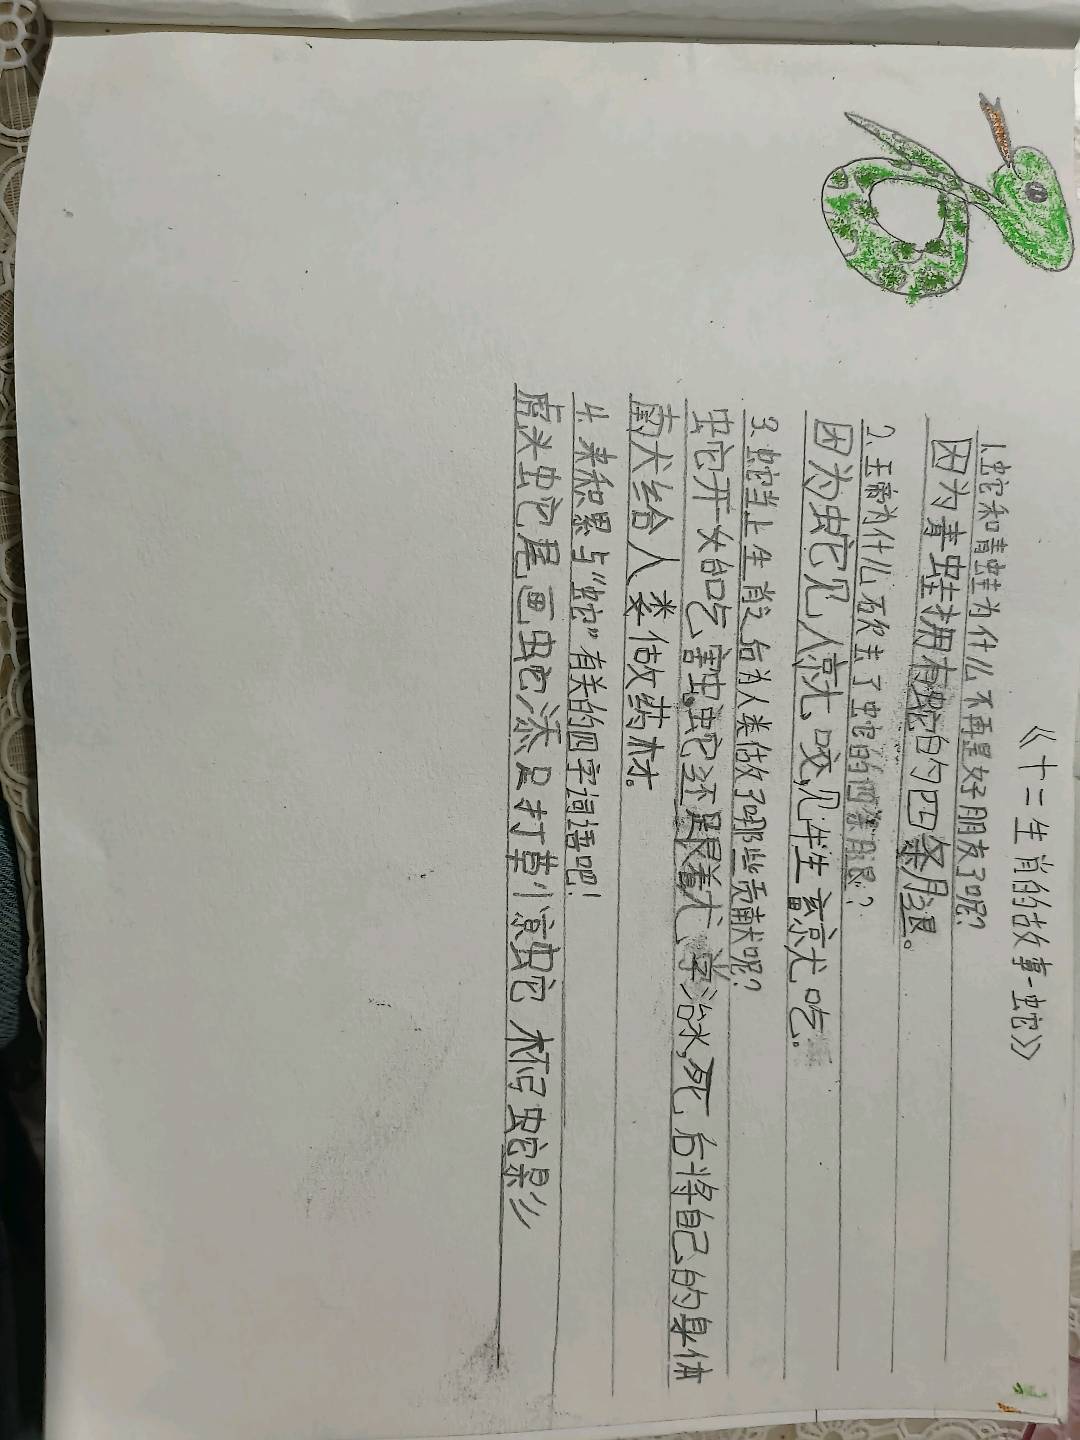 《十二生肖的故事-蛇》
1.蛇和青蛙为什么不再是好朋友了呢?
因为青蛙拥有蛇的四条腿。
2.玉帝为什么砍去了蛇的四条腿?
因为蛇见人就咬,见牲畜就吃。
3.蛇当上生肖之后为人类做了哪些贡献呢?
蛇开始吃害虫,蛇还跟着龙学治水,死后将自己的身体
献给人类做药材。
4.来积累与“蛇”有关的四字词语吧!
虎头蛇尾 画蛇添足 打草惊蛇 杯弓蛇影